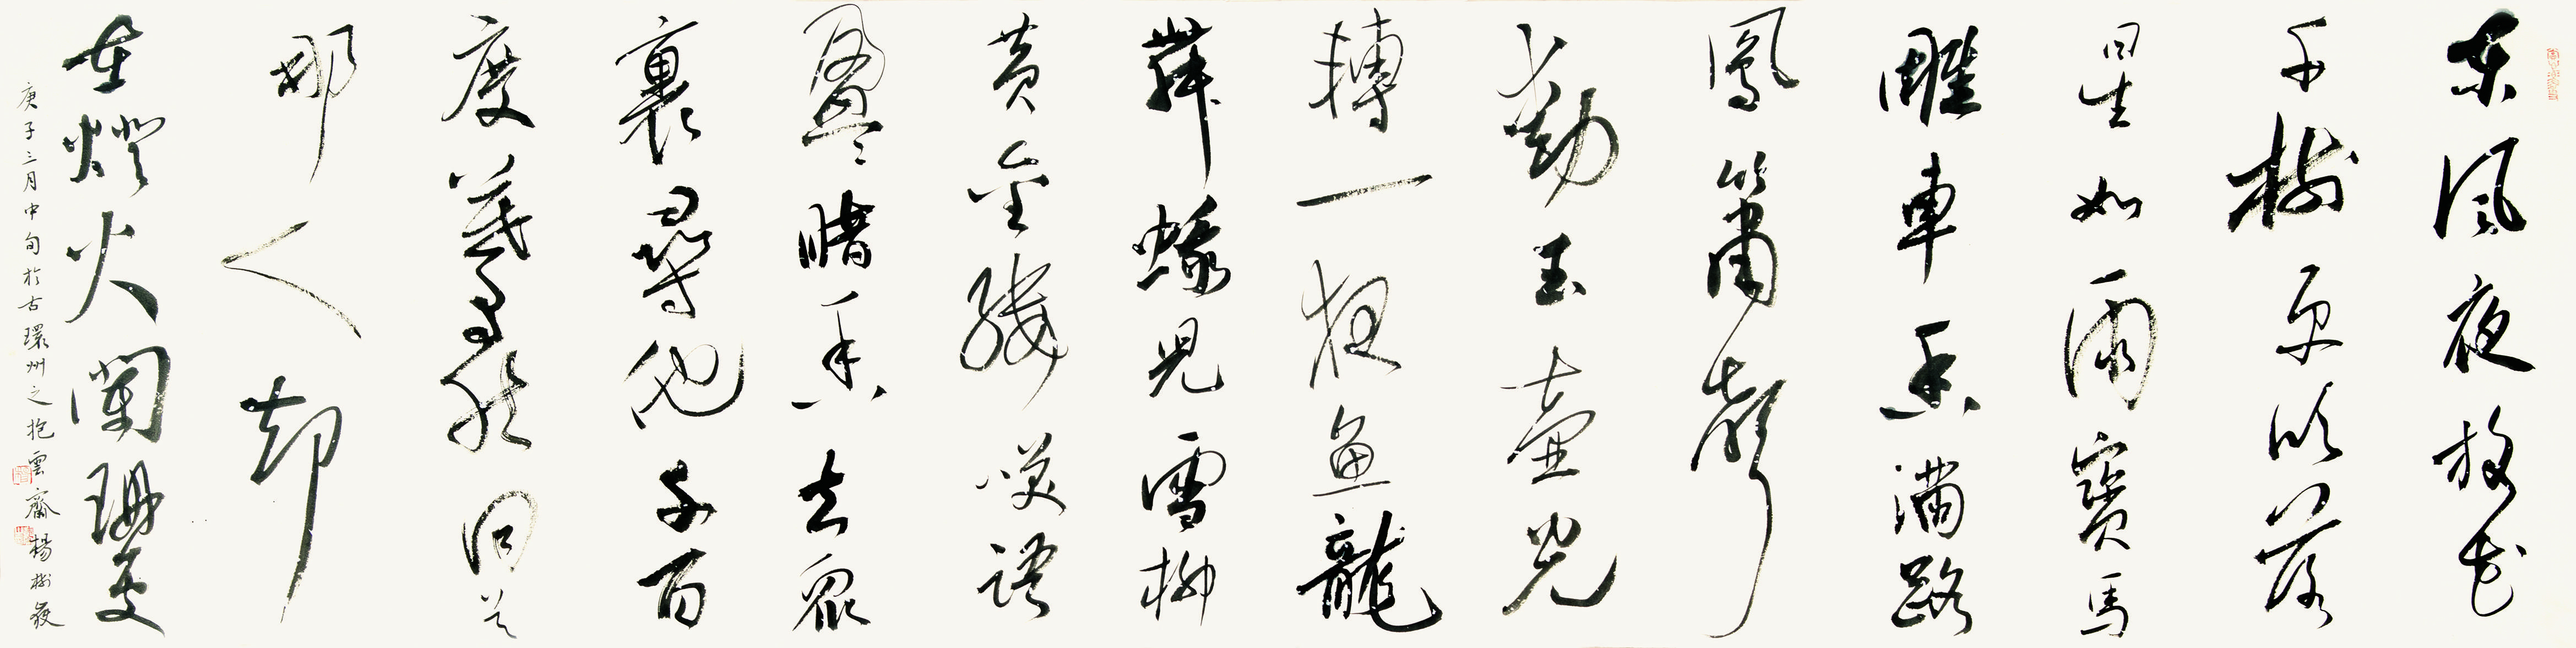 东风夜放花
千樹更吹落
星如雨寶馬
雕車香滿路
鳳簫聲
動玉壺光
轉一夜魚龍
舞蛾兒雪柳
黄金縷咲語
盈〻暗香去眾
裏尋他千百
度驀然回首
那人却
在燈火闌珊處
庚子三月中旬於古環州之抱雲齋楊樹發